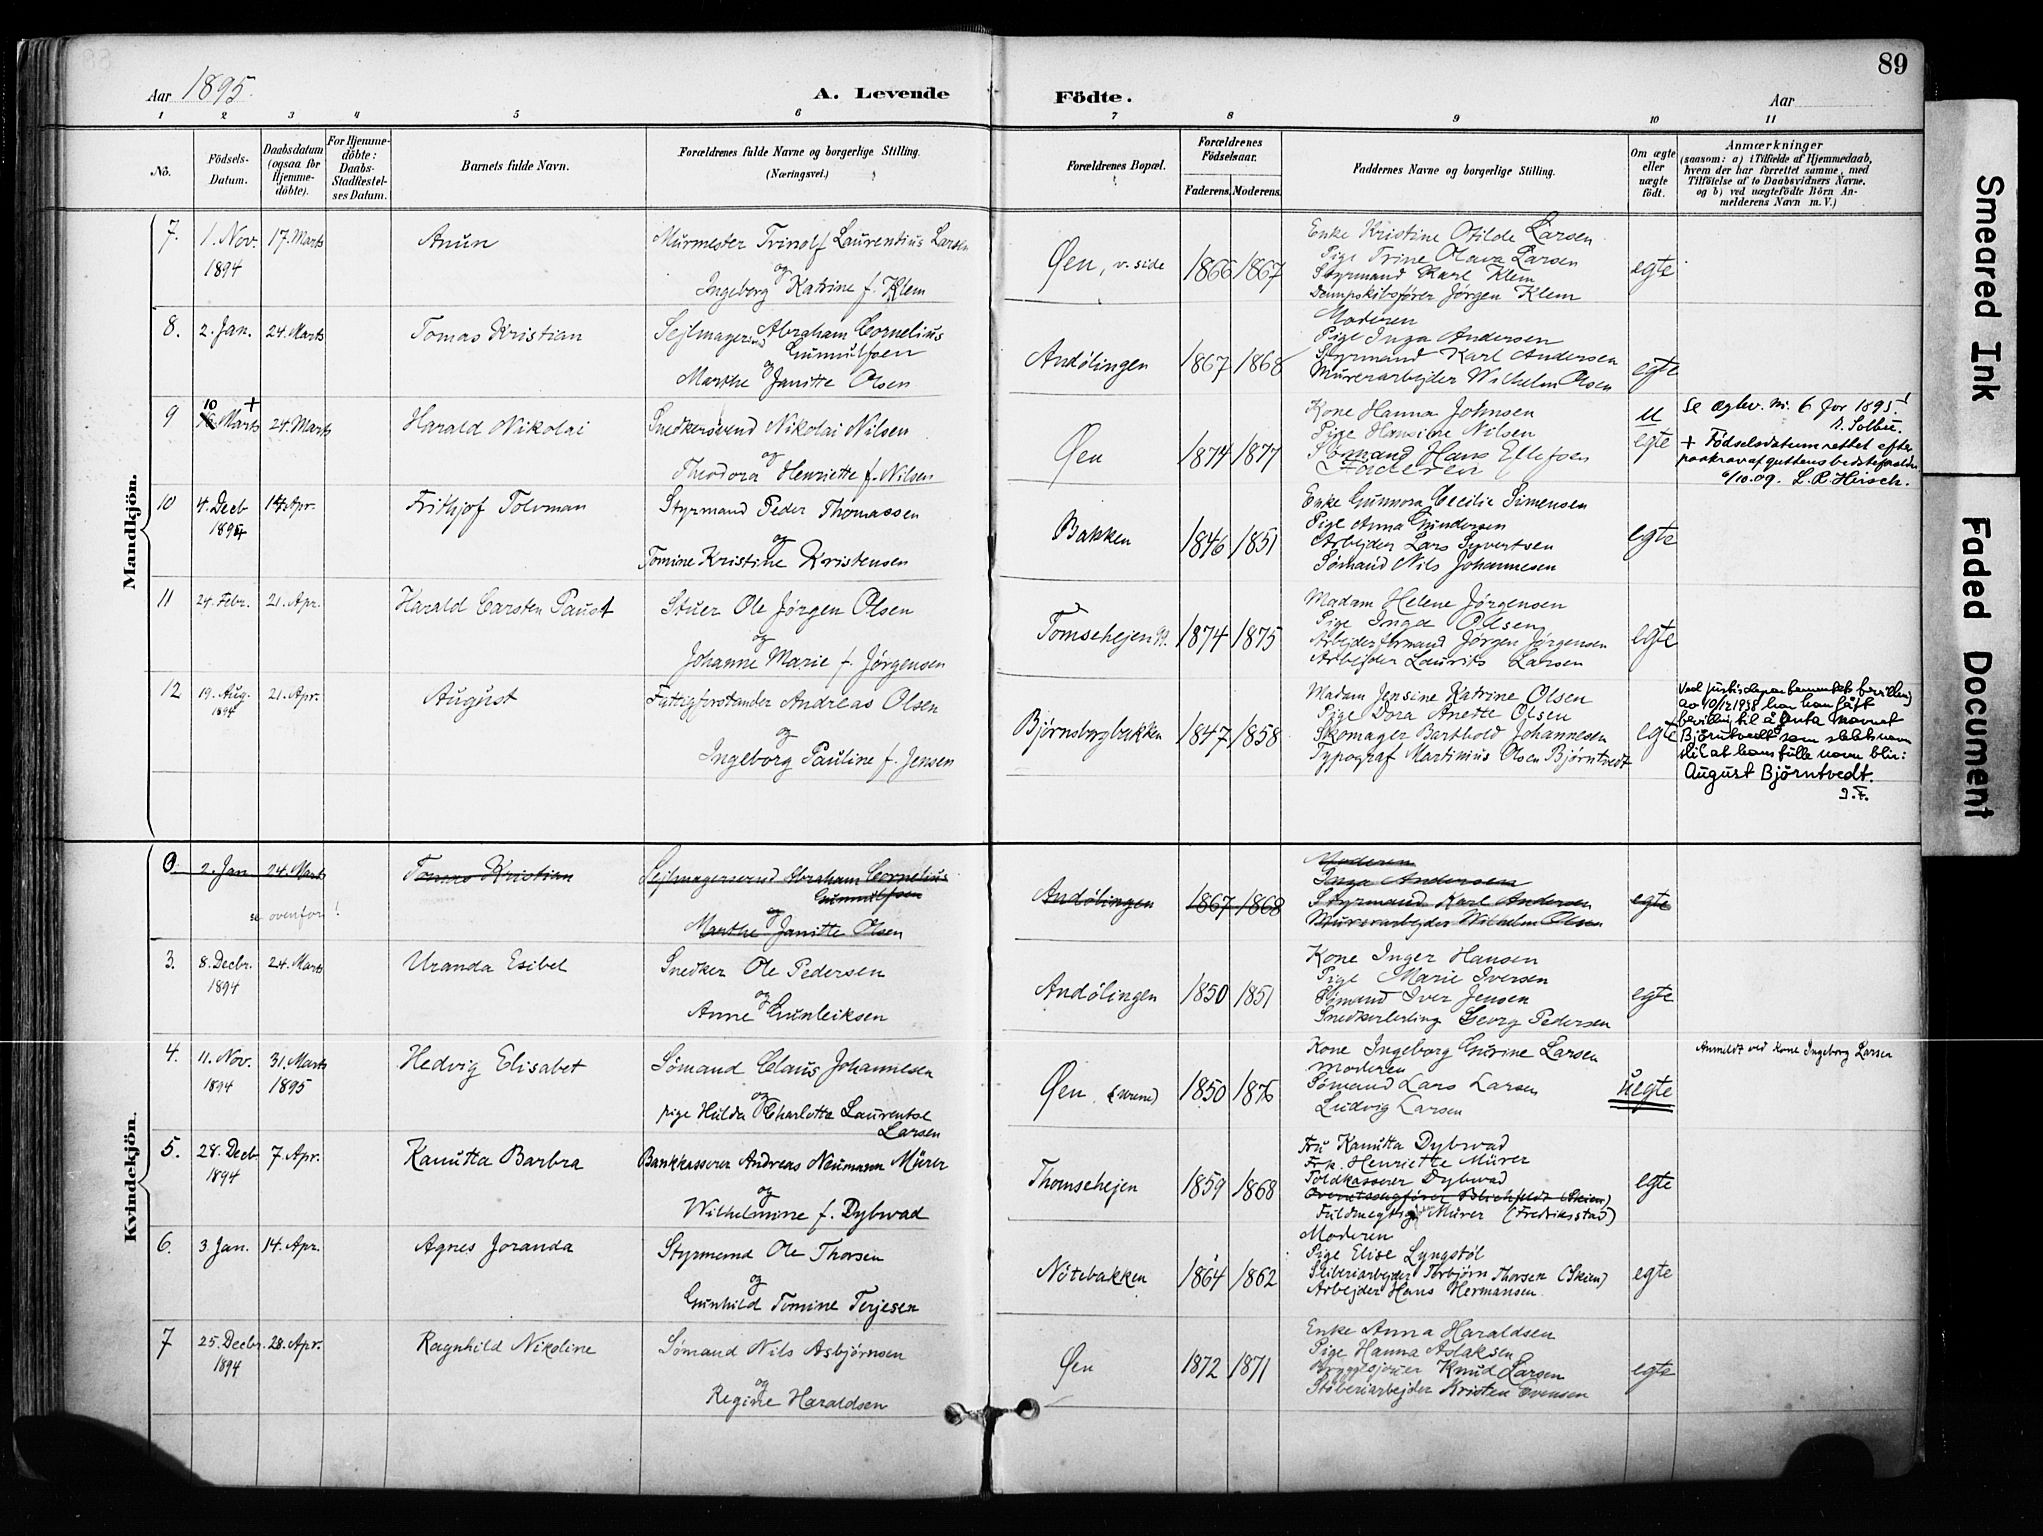 89
Aar 1895.
A. Levende Födte.
Aar
1 2 3 4 5 6 7 8 9 10 11
No.
Födsels-Datum.
Daabsdatum (ogsaa for Hjemme-döbte).
For Hjemme-döbte: Daabs-Stadfæstel-ses Datum.
Barnets fulde Navn.
Forældrenes fulde Navne og borgerlige Stilling.
(Næringsvei.)
Forældrenes Bopæl.
Forældrenes Födselsaar.
Faderens. Moderens.
Faddernes Navne og borgerlige Stilling.
Om ægte eller uægte födt.
Anmærkninger
(saasom: a) i Tilfælde af Hjemmedaab, hvem der har forrettet samme, med Tilföielse af to Daabsvidners Navne. og b) ved uægtefödte Börn An-melderens Navn m. V.)
Mandkjön.
7. 1. Nov. 1894 17. Marts
Anun
Murmester Trinolf Laurentius Larsen
og
Ingeborg Katrine f. Klem
Øen, v. side
1866 1867
Enke Kristine Otilde Larsen
Pige Trine Olava Larsen
Styrmand Karl Klem
Dampskibsfører Jørgen Klem
egte
8. 2. Jan. 24. Marts
Tomas Kristian
Sejlmagersvend Abraham Cornelius
Gunnulfsen
og
Marthe Janitte Olsen
Andølingen
1867 1868
Moderen
Pige Inga Andersen
Styrmand Karl Andersen
Murerarbejder Wilhelm Olsen
egte
9 10 + Marts 24. Marts
Harald Nikolai
Snedkersvend Nikolai Nilsen
og
Theodora Henriette f. Nilsen
Øen
1874 1877
Kone Hanna Johnsen
Pige Hansine Nilsen
Sømand Hans Ellefsen
Faderen
u
egte
Se æglev. nr. 6 for 1895!
+ Födselsdatum rettet efter
paakrav af guttens bedsteforeldre
6/10.09. L. R. Hirsch.
10 4. Decb 1894 14. Apr.
Frithjof Tolvman
Styrmand Peder Thomassen
og
Tomine Kristine Kristensen
Bakken
1846 1851
Enke Gunnora Cecilie Simensen
Pige Anna Gundersen
Arbejder Lars Syvertsen
Sømand Nils Johannesen
egte
11 24. Febr. 21. Apr.
Harald Carsten Paust
Stuer Ole Jørgen Olsen
og
Johanne Marie f. Jørgensen
Tomsehejen
1874 1875
Madam Helene Jørgensen
Pige Inga Olsen
Arbejdsformand Jørgen Jørgensen
Arbejder Laurits Larsen
egte
12 19. Aug. 1894 21. Apr.
August
Fattigforstander Andreas Olsen
og
Ingeborg Pauline f. Jensen
Bjørnsborgbakken
1847 1858
Madam Jensine Katrine Olsen
Pige Dora Anette Olsen
Skomager Barthold Johannesen
Typograf Martinius Olsen Bjørntvedt
egte
Ved justisdepartementets bevilling
av 10/12 1938 har han fått
bevilling til å anta navnet
Björntvedt som slektsnavn
slik at hans fulle navn blir:
August Björntvedt.
J. F.
Kvindekjön.
2. Jan 24. Marts
se ovenfor!
Tomas Kristian
Sejlmagersvend Abraham Cornelius
Gunnulfsen
og
Marthe Janitte Olsen
Andølingen
1867 1868
Moderen
Inga Andersen
Styrmand Karl Andersen
Murerarbejder Wilhelm Olsen
egte
3. 8. Decbr. 1894 24. Marts
Uranda Esibel
Snedker Ole Pedersen
og
Anne Gunleiksen
Andølingen
1850 1851
Kone Inger Hansen
Pige Marie Iversen
Sømand Iver Jensen
Snedkerlerling Georg Pedersen
egte
4. 11. Nov. 1894 31. Marts 1895
Hedvig Elisabet
Sømand Claus Johannesen
og
pige Hulda Charlotta Laurentse
Larsen
Øen
1850 1876
Kone Ingeborg Gurine Larsen
Moderen
Sømand Lars Larsen
Ludvig Larsen
uegte
Anmeldt ved kone Ingeborg Larsen
5. 28. Decb 1894 7. Apr.
Kanutta Barbra
Bankkasserer Andreas Neumann Mürer
og
Wilhelmine f. Dybwad
Thomsehejen
1859 1868
Fru Kanutta Dybwad
Frk. Henriette Mürer
Toldkasserer Dybwad
Overretssagfører Blichfeldt (Skien)
Fuldmegtig Mürer (Fredriksstad)
egte
6. 3. Jan. 14. Apr.
Agnes Joranda
Styrmand Ole Thorsen
og
Gunhild Tomine Terjesen
Nötebakken
1864 1862
Moderen
Pige Elise Lyngstöl
Sliberiarbejder Torbjörn Thorsen (Skien)
Arbejder Hans Hermansen
egte
7 25. Decbr. 1894 28. Apr.
Ragnhild Nikoline
Sømand Nils Asbjørnsen
og
Regine Haraldsen
Øen
1872 1871
Enke Anna Haraldsen
Pige Hanna Aslaksen
Knud Larsen
Støberiarbejder Kristen Evensen
egte
Smeared Ink
Faded Document